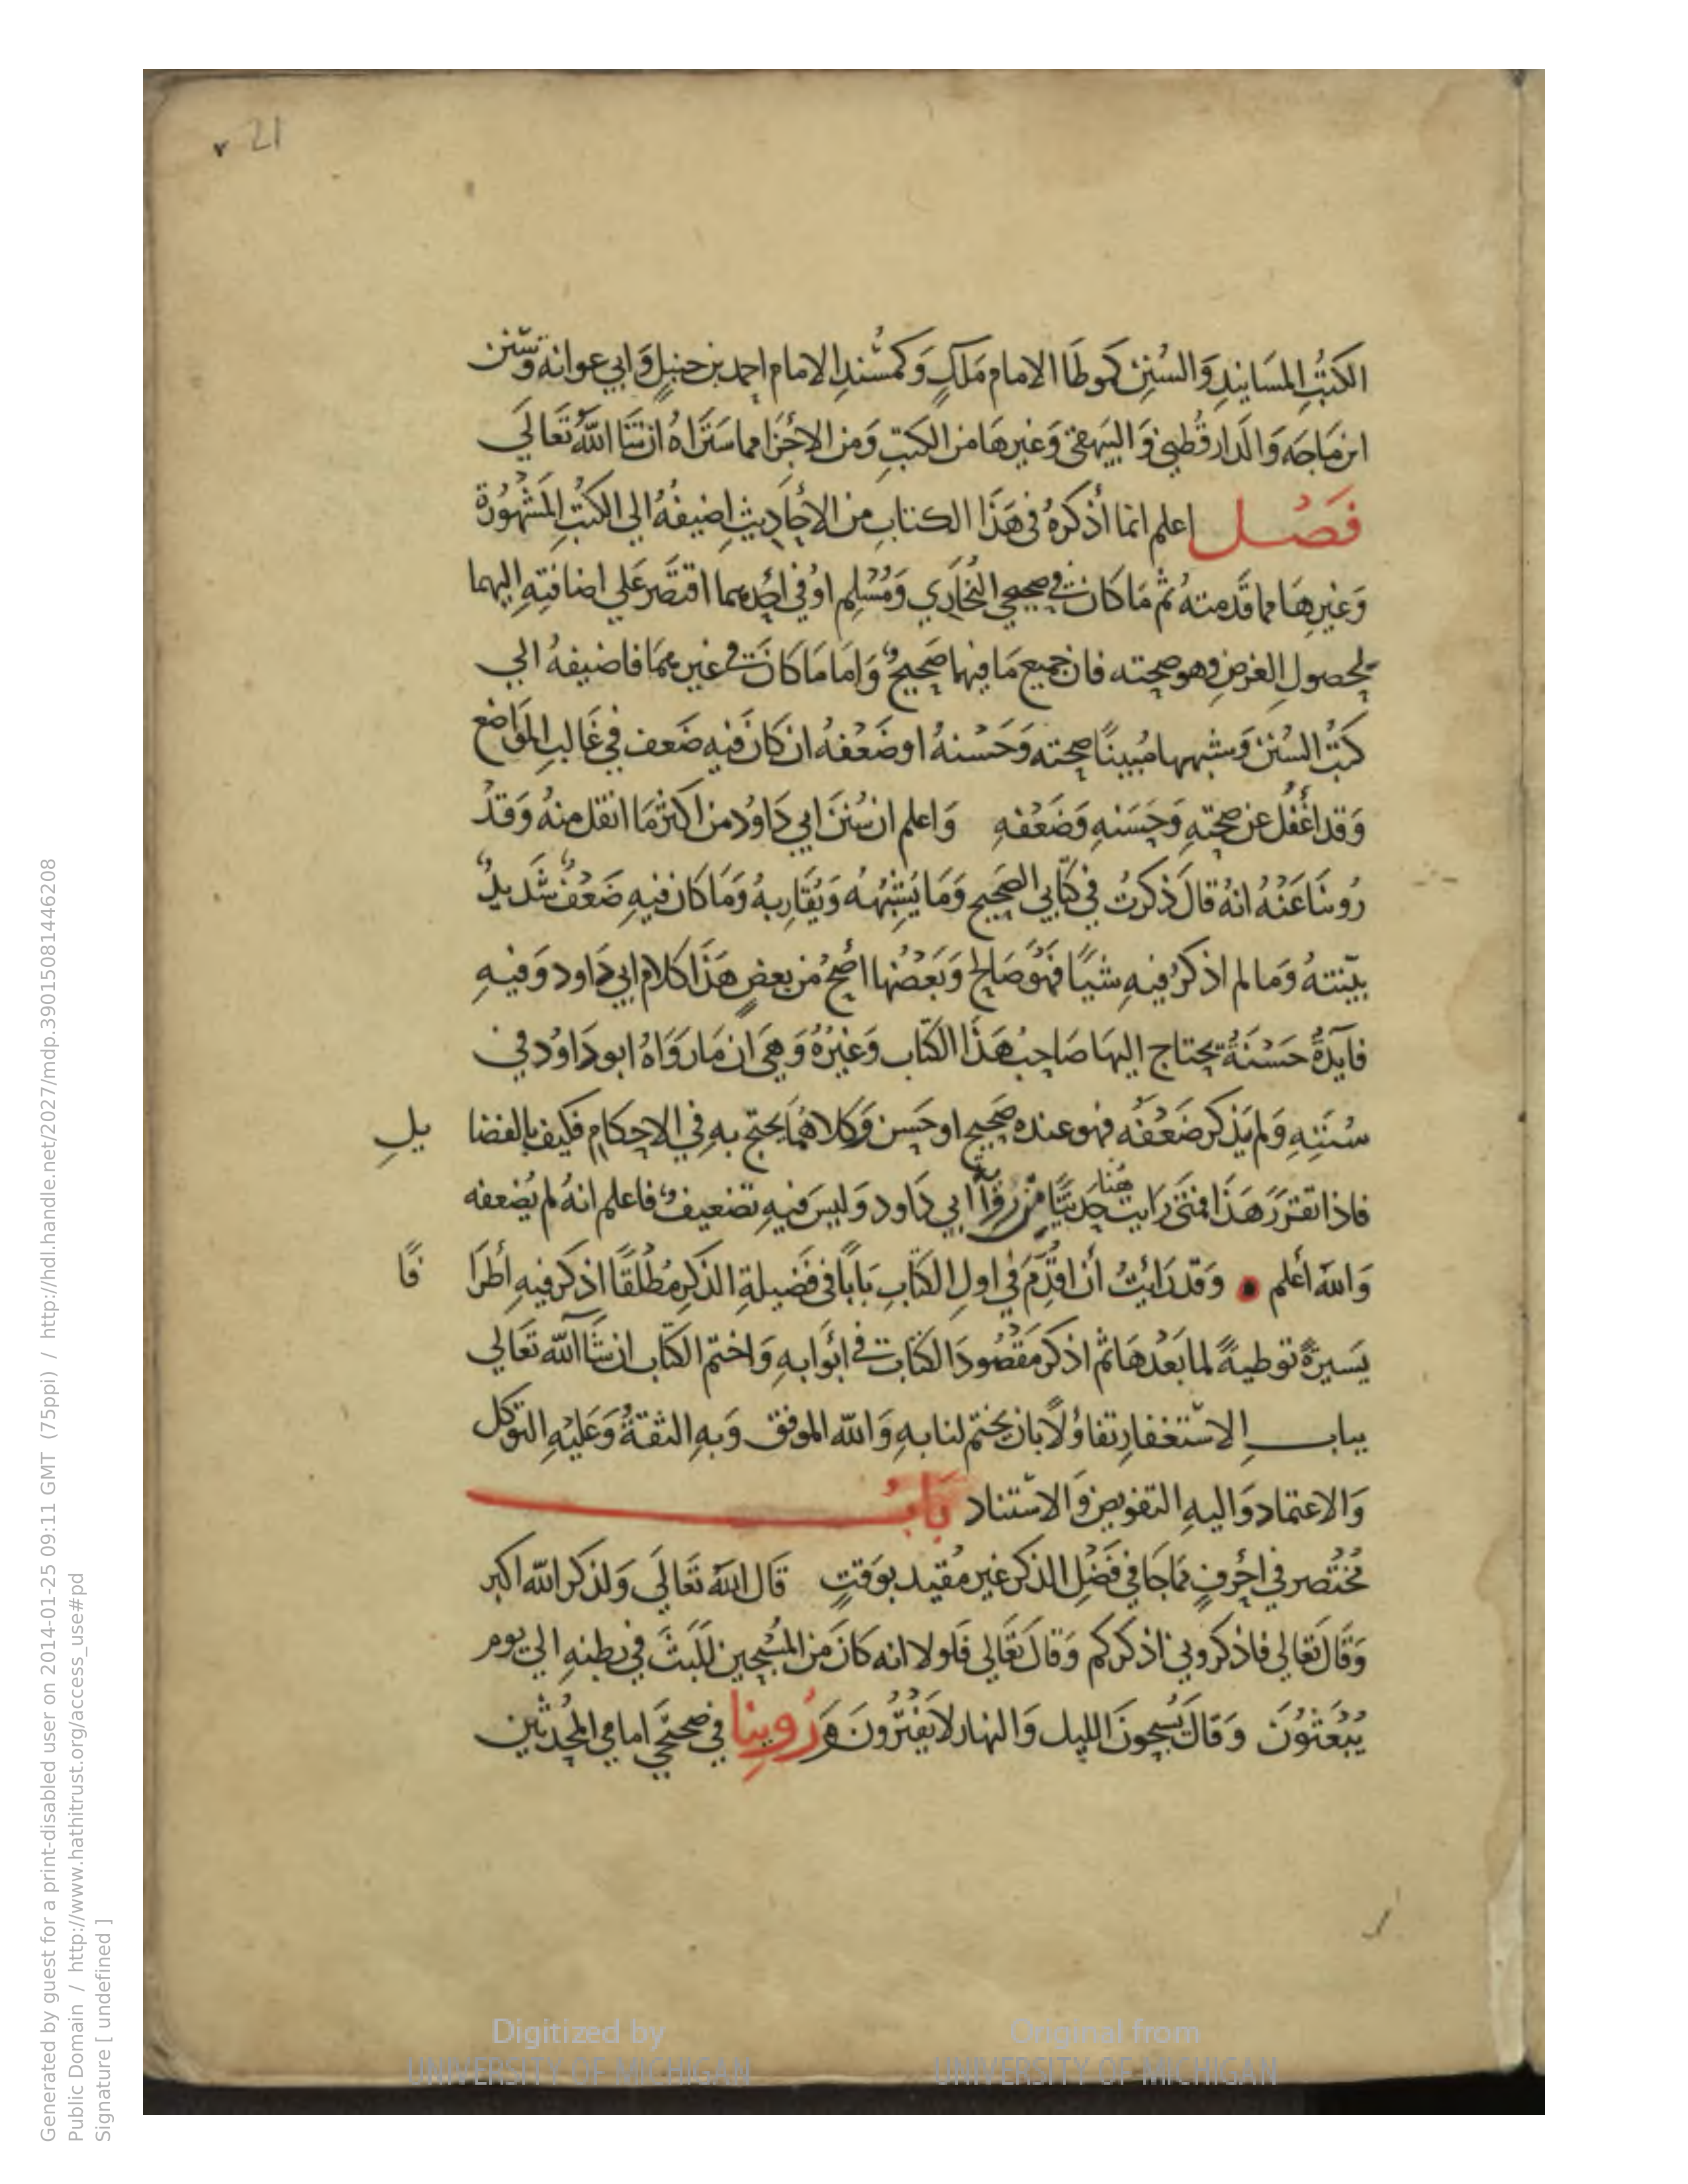 21
الكتُبِ المسَانيدِ وَالسُنِن كموطَا الامام مَلكٍ وَكمسْندِ الامام احمد بن حنبلٍ وَابي عوانة وَسْنن
ابن مَاجَه وَالدار قُطني وَالبيَهقي وَغيرهَا من الكتبِ وَمن الاجْزا مما سَتَراهُ ان شَا اللهُ تَعَالَي
فَصْل اعلم انما أذكرهُ في هَذَا الكتابِ من الأحَاديثِ اضيفُهُ الي الكتُبِ المَشْهُورَة
وَغيرِهَا مما قَدمتهُ ثم مَا كانَ في صحيحي البُخَاري وَمُسْلِم اوْ في احَدِهما اقتَصَر عَلي اضافتِهِ اليهما
لحصولِ الغرضِ وهو صحته فان جميع مَا فيهما صَحيحٌ وَاما مَا كانَ في غيرهمَا فاضيفهُ الي
كتُبِ السُنَنِ وَشبهها مُبينًا صحته وَحَسْنهُ اوضَعْفهُ ان كانَ فيهِ ضَعف في غَالبِ المَوَاضع
وَقد اغْفُل عن صحتِهِ وَحَسَنهِ وَضَعْفهِ وَاعلم ان سُنَن ابي دَاوُد من اكثرْ مَا انقل منِهُ وَقدْ
رُوينَا عَنْهُ انهُ قالَ ذكرتُ في كتَابي الصَحيح وَمَا يُشْبِهُهُ وَيُقَاربهُ وَمَا كان فيهِ ضَعْفٌ شَديدٌ
بيّنتهُ وَما لم اذكرْ فيهِ شيًا فهُوَ صَالح وَبَعْضُها اصَحُ من بعضٍ هَذَا كلام ابي دَاود وَفيهِ
فايدَةٌ حَسْنَةٌ يحتاج اليهَا صَاحبُ هَذَا الكتَاب وَغيْرُهُ وَهيَ ان مَا رَوَاهُ ابو دَاوُد في
سُننِهِ وَلم يَذكر ضَعْفَه فهو عنده صَحيح او حَسن وَكلاهُمَا يحتج بهِ في الاحكامِ فكيفَ بالفضا يلِ
فاذا تقرَرَ هَذَا فمتَي رَايت هُنا حَديثًا من روَاية ابي دَاود وَليسَ فيهِ تضعيفٌ فاعلم انهُ لم يُضعفه
وَاللهُ أعلم • وَقد رَايْتُ أن اقَدِّمَ في اولِ الكتَابِ بَابًا في فَضيلةِ الذكرِ مُطْلقًا اذكر فيهِ أطْرَا فًا
يَسيرةً توطيةً لما بَعْدهَا ثم اذكر مَقْصُودَ الكتَابَ في ابْوَابهِ وَاختم الكتَاب ان شَا اللّه تعَالي
ببابِ الاسْتغفارِ تفاؤلًا بان يختم لنا بهِ وَالله الموفق وَبهِ الثقةُ وَعَليْهِ التوَكل
وَالاعتماد وَاليهِ التفويض وَالاسْتناد بَابُ
مُختْصر في احْرفٍ مما جَا في فَضْلِ الذكر غير مُقيد بوَقتٍ قال اللهُ تَعَالَي وَلذكر اللّه اكبر
وَقَالَ تَعَالي فاذكروني اذكركم وَقالَ تعَالي فلولا انه كانَ مَن المسْبحين للَبثَ في بطنهِ الي يوم
يُبْعَثوُنَ وَقالَ يُسبحونَ الليل وَالنهار لا يَفْتُرُونَ وَرُوينا في صَحيحَي امامي المحَدثين
Generated by guest for a print-disabled user on 2014-01-25 09:11 GMT (75ppi) / http://hdl.handle.net/2027/mdp.39015081446208
Public Domain / http://www.hathitrust.org/access_use#pd
Signature [ undefined ]
Digitized by
UNIVERSITY OF MICHIGAN
Original from
UNIVERSITY OF MICHIGAN